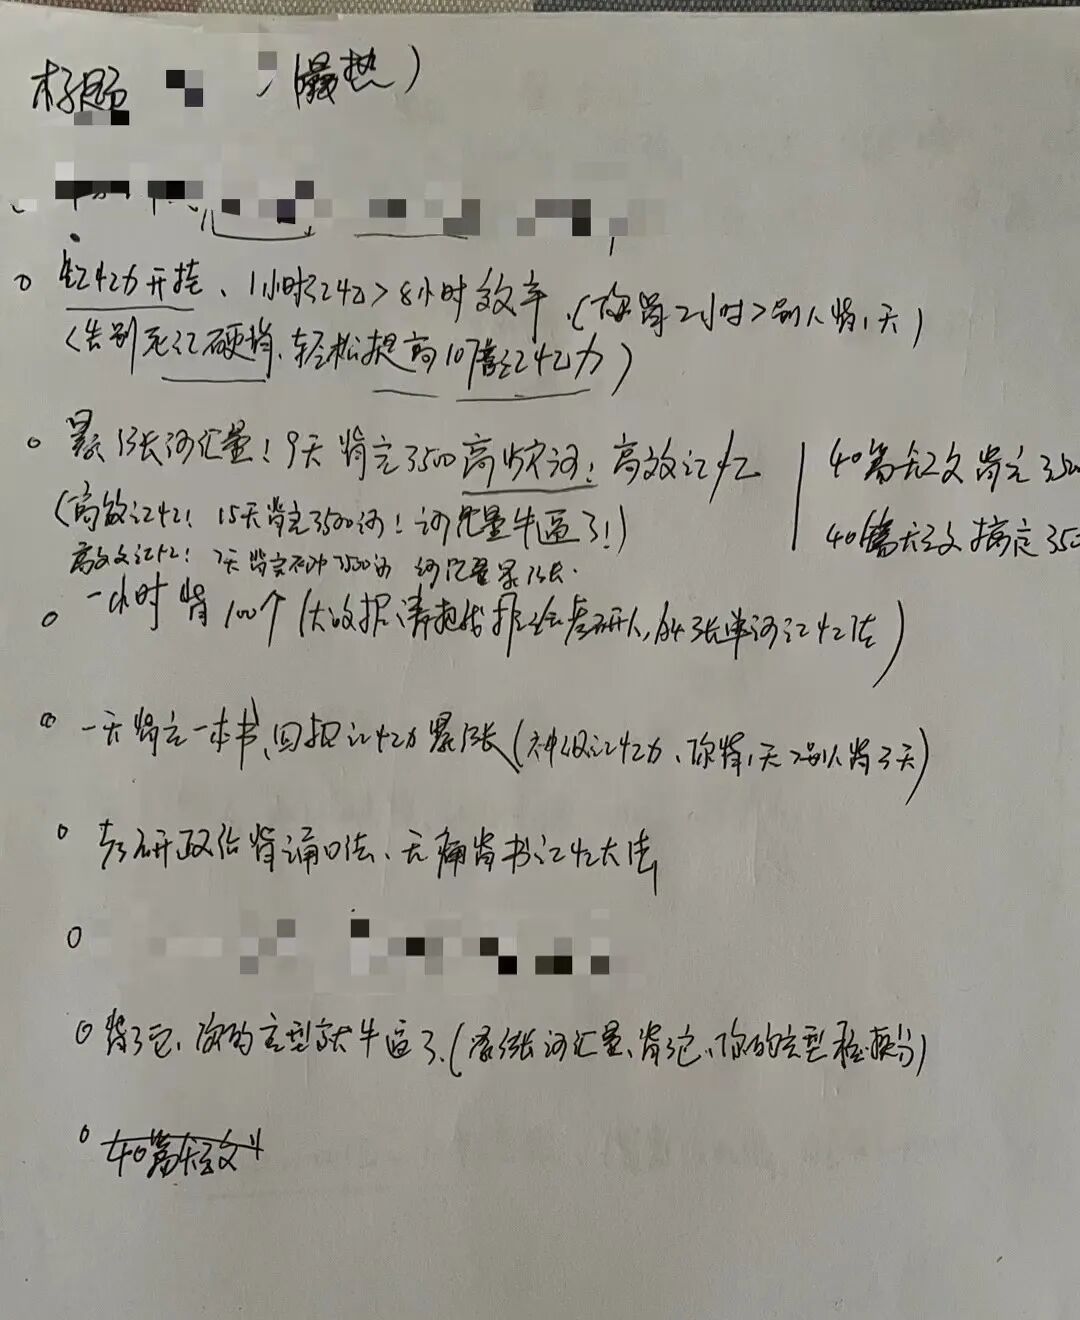 标题 (最热)
记忆力开挂、1小时记忆>8小时效率.(你背2小时>别人背1天)
(告别死记硬背、轻松提高10倍记忆力)
暴涨词汇量!9天背完3500高频词!高效记忆
40篇短文背完350
(高效记忆!15天背完3500词!词汇量牛逼了!)
40篇短文搞定350
高效记忆!7天背完 3500词 词汇量暴涨.
一小时背100个(大数据请把我推给考研人,单词记忆法)
一天背完一本书、回报记忆力暴涨(神级记忆力、你背1天>别人背3天)
考研政治背诵口法、无痛背书记忆大法
背了它、你的完型就牛逼了.(暴涨词汇量、背它、你的完型稳拿分)
40篇短文